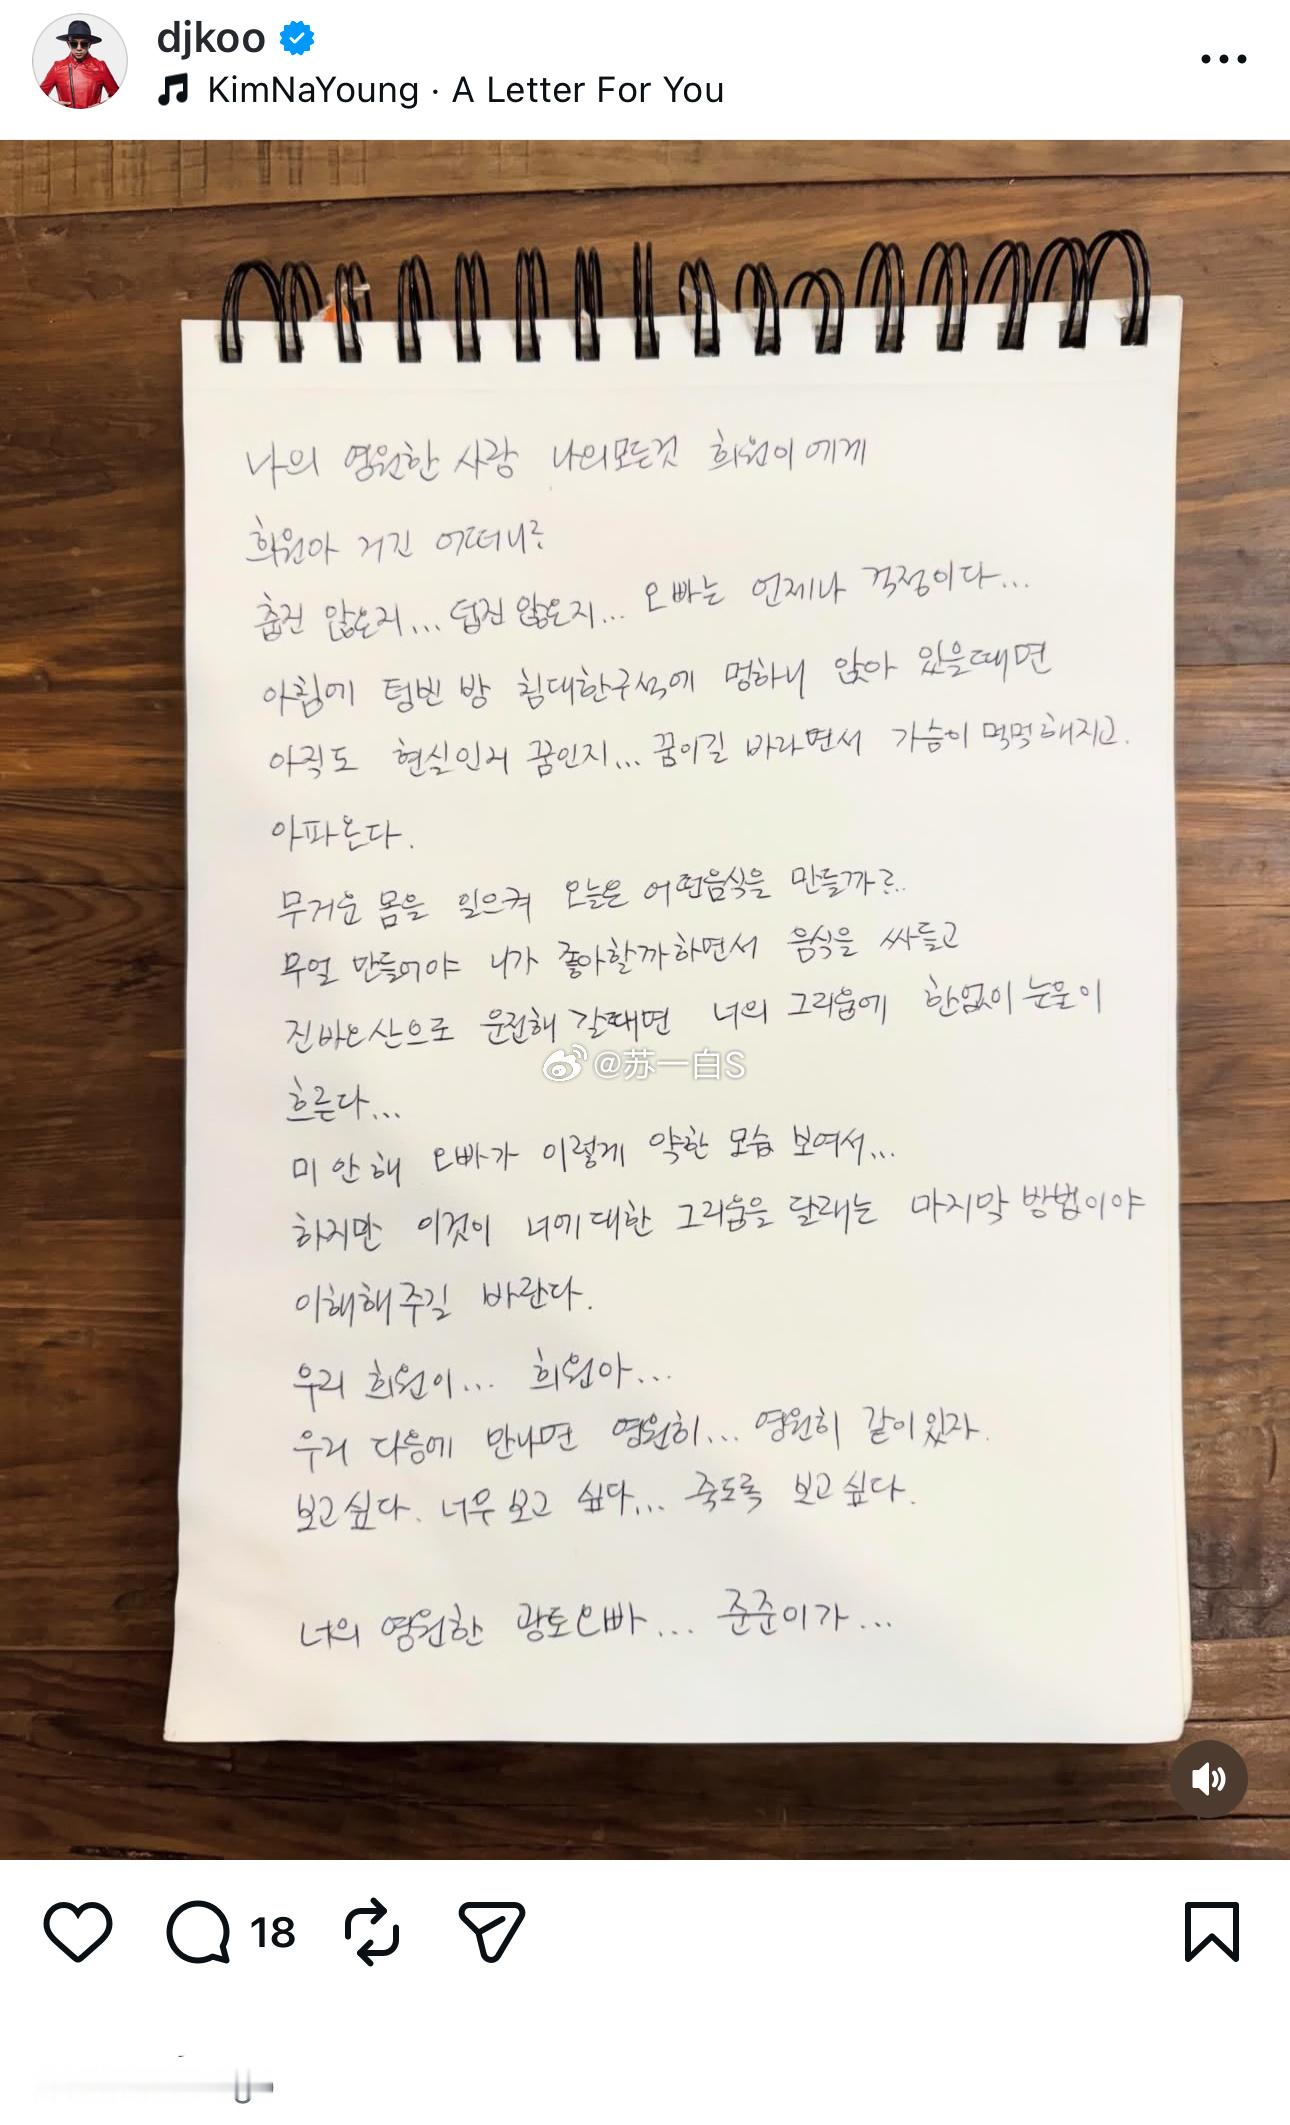 djkoo
KimNaYoung · A Letter For You
나의 영원한 사랑 나의모든것 희원이에게
희원아 거긴 어떠니?
춥진 않은지... 덥진 않은지... 오빠는 언제나 걱정이다...
아침에 텅빈 방 침대한구석에 멍하니 앉아 있을때면
아직도 현실인거 꿈인지... 꿈이길 바라면서 가슴이 먹먹해지고.
아파온다.
무거운 몸을 일으켜 오늘은 어떤음식을 만들까?..
무얼 만들어야 니가 좋아할까하면서 음식을 싸들고
진바오산으로 운전해 갈때면 너의 그리움에 한없이 눈물이
흐른다...
미안해 오빠가 이렇게 약한 모습 보여서...
하지만 이것이 너에대한 그리움을 달래는 마지막 방법이야
이해해주길 바란다.
우리 희원이... 희원아...
우리 다음에 만나면 영원히... 영원히 같이있자.
보고싶다. 너무 보고 싶다... 죽도록 보고싶다.
너의 영원한 광토오빠... 준준이가...
@苏一白S
18